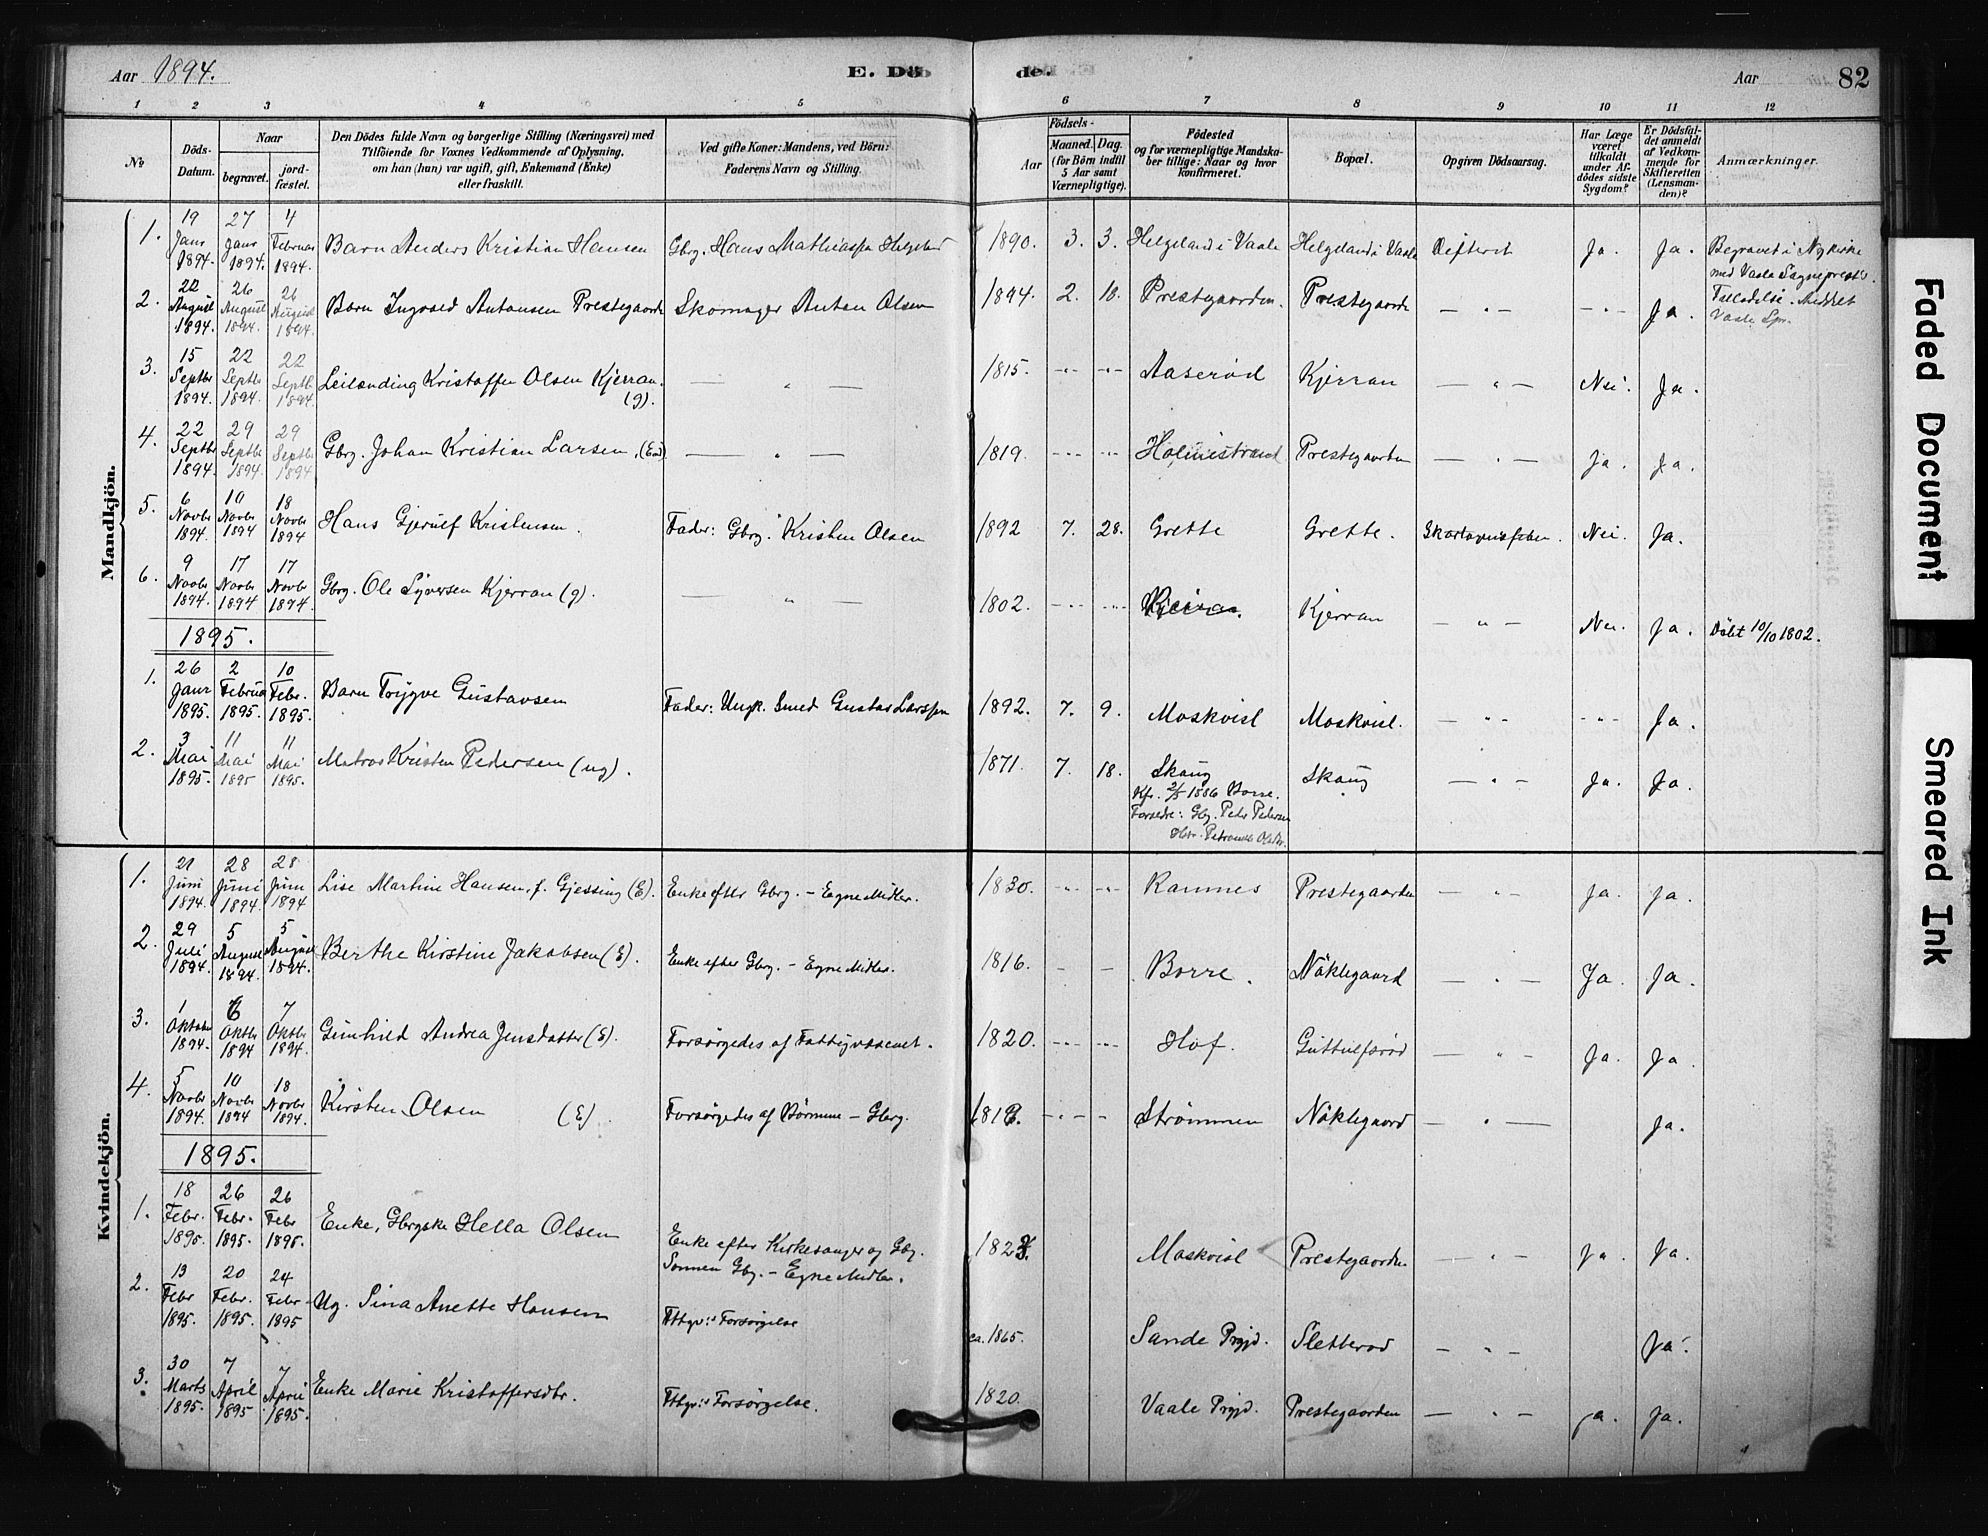 Aar 1894.
E. Döde.
Aar
82
1 2 3 4 5 6 7 8 9 10 11 12
No
Döds-Datum.
Naar
begravet.
jordfæstet.
Den Dödes fulde Navn og borgerlige Stilling (Næringsvei) med
Tilföiende for Voxnes Vedkommende af Oplysning,
om han (hun) var ugift, gift, Enkemand (Enke)
eller fraskilt.
Ved gifte Koner: Mandens, ved Börn:
Faderens Navn og Stilling.
Födsels-
Aar
Maaned. Dag.
(for Börn indtil
5 Aar samt
Værnepligtige).
Födested
og for værnepligtige Mandska-
ber tillige: Naar og hvor
konfirmeret.
Bopæl.
Opgiven Dödsaarsag.
Har Læge
været
tilkaldt
under Af-
dödes sidste
Sygdom?
Er Dödsfal-
det anmeldt
af Vedkom-
mende for
Skifteretten
(Lensman-
den)?
Anmærkninger.
Mandkjön.
1. 19 Janr 1894. 27 Janr 1894. 4 Februar 1894. Barn Anders Kristian Hansen Gbrg. Hans Mathiassen Helgeland 1890. 3. 3. Helgeland i Vaale Helgeland i Vaale Difterit Ja. Ja. Begravet i Nykirke
med Vaale Sogneprest's
Tilladelse. Meddelt
Vaale Spr.
2. 22 August 1894. 26 August 1894. 26 August 1894. Barn Ingvald Antonsen Prestegaarden Skomager Anton Olsen 1894. 2. 18. Prestegaarden. Prestegaarden — " — - " - Ja.
3. 15 Septbr 1894. 22 Septbr 1894. 22 Septbr 1894. Leilænding Kristoffer Olsen Kjerran. (g). — " — 1815. - " - - " - Aaserød Kjerran — " — Nei. Ja.
4. 22 Septbr 1894. 29 Septbr 1894. 29 Septbr 1894 Gbrg. Johan Kristian Larsen, (Em) — " — 1819. - " - - " - Holmestrand Prestegaarden — " — Ja. Ja.
5. 6 Novbr 1894. 10 Novbr 1894 18 Novbr 1894 Hans Gjerulf Kristensen. Fader: Gbrg. Kristen Olsen 1892 7. 28. Grette Grette. Skarlagensfeber. Nei. Ja.
6. 9 Novbr 1894. 17 Novbr 1894 17 Novbr 1894. Gbrg. Ole Syversen Kjerran (g). — " — 1802. - " - - " - Kjerran. Kjerran — " — Nei. Ja. Döbt 10/10 1802.
1895.
1. 26 Janr 1895. 2 Februar 1895. 10 Febr. 1895. Barn Trygve Gustavsen Fader: Ungk. Smed Gustav Larssen 1892. 7. 9. Moskvisl Moskvisl. — " — - " - Ja.
2. 3 Mai 1895. 11 Mai 1895 11 Mai 1895. Matros Kristen Pedersen (ug). 1871. 7. 18. Skaug
Kfr. 2/5 1886 Borre.
Forældre: Gbg. Peter Pedersen
Skaug — " — Ja. Ja.
Kvindekjön.
1. 21 Juni 1894. 28 Juni 1894. 28 Juni 1894 Lise Martine Hansen, f. Gjessing (E). Enke efter Gbrg. – Egne Midler. 1830. - " - - " - Ramnes Prestegaarden — " — Ja. Ja.
2. 29 Juli 1894. 5 August 1894. 5 August 1894. Berthe Kirstine Jakobsen (E). Enke efter Gbrg. – Egne Midler. 1816. - - Borre. Nöklegaard — " — Ja. Ja.
3. 1 Oktober 1894. 6 Oktbr 1894 7 Oktbr 1894. Gunhild Andrea Jensdatter (E). Forsørgedes af Fattigvæsenet. 1820. - " - - " - Hof. Guttulfsrød — " — Ja. Ja
4. 5 Novbr 1894. 10 Novbr 1894 18 Novbr 1894. Kirsten Olsen (E). Forsørgedes af Børnene – Gbrg. - " - - Strømmen Nöklegaard — " — Ja.
1895.
1. 18 Febr. 1895. 26 Febr. 1895. 26 Febr 1895. Enke, Gbrgske Hella Olsen Enke efter Kirkesanger og Gbg.
Sønnen Gbg. – Egne Midler. Moskvisl Prestegaarden — " — Ja. Ja.
2. 13 Febr 1895. 20 Febr. 1895. 24 Febr. 1895 Ug. Sina Anette Hansen Fttgv:s Forsørgelse ca. 1865. Sande Prgjd. Sletterød — " — Ja.
3. 30 Marts 1895. 7 April 1895 7 April 1895. Enke Marie Kristoffersdtr. Fttgv:s Forsørgelse. 1820. Vaale Prgjd. Prestegaarden — " — Ja. Ja.
Faded Document
Smeared Ink